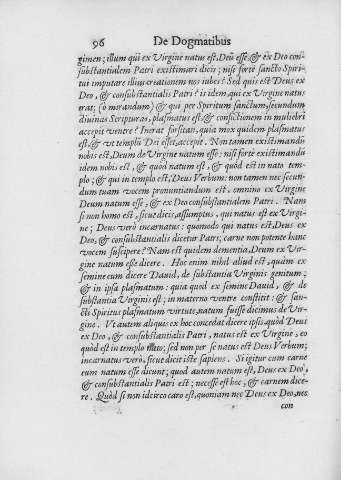 96 De Dogmatibus
gimen; illum qui ex Virgine natus est, Deū esse, & ex Deo con-
substantialem Patri existimari dicis; nisi fortè sancto Spiri-
tui imputare illius creationem nos iubes? Sed quis est Deus ex
Deo, & consubstantialis Patri? ii idem, qui ex Virgine natus
erat; (o mirandum) & qui per Spiritum sanctum, secundum
diuinas Scripturas, plasmatus est, & confictionem in muliebri
accepit ventre? Inerat forsitan, quia mox quidem plasmatus
est, & vt templū Dei esset, accepit. Non tamen existimandū
nobis est, Deum de Virgine natum esse: nisi fortè existimandū
idem nobis est, & quod natum est, & quòd est in nato tem-
plo; & qui in templo est, Deus Verbum: non tamen nec secun-
dum tuam vocem pronuntiandum est, omnino ex Virgine
Deum natum esse, & ex Deo consubstantialem Patri. Nam
si non homo est, sicut dicis, assumptus, qui natus est ex Virgi-
ne; Deus verò incarnatus: quomodo qui natus est, Deus ex
Deo, & consubstantialis dicetur Patri; carne non potente hanc
vocem suscipere? Nam est quidem dementia, Deum ex Vir-
gine natum esse dicere. Hoc enim nihil aliud est, quàm ex
semine eum dicere Dauid, de substantia Virginis genitum;
& in ipsa plasmatum: quia quod ex semine Dauid, & de
substantia Virginis est; in materno ventre constitit: & san-
cti Spiritus plasmatum virtute, natum fuisse dicimus de Vir-
gine. Vt autem aliquis ex hoc concedat dicere ipsis, quòd Deus
ex Deo, & consubstantialis Patri, natus est ex Virgine, eo
quòd est in templo sed non per se natus est Deus Verbum;
incarnatus verò, sicut dicit iste sapiens. Si igitur cum carne
eum natum esse dicunt; quod autem natum est, Deus ex Deo,
& consubstantialis Patri est; necesse est hoc, & carnem dice-
re. Quòd si non idcirco caro est, quoniam nec Deus ex Deo, nec
con